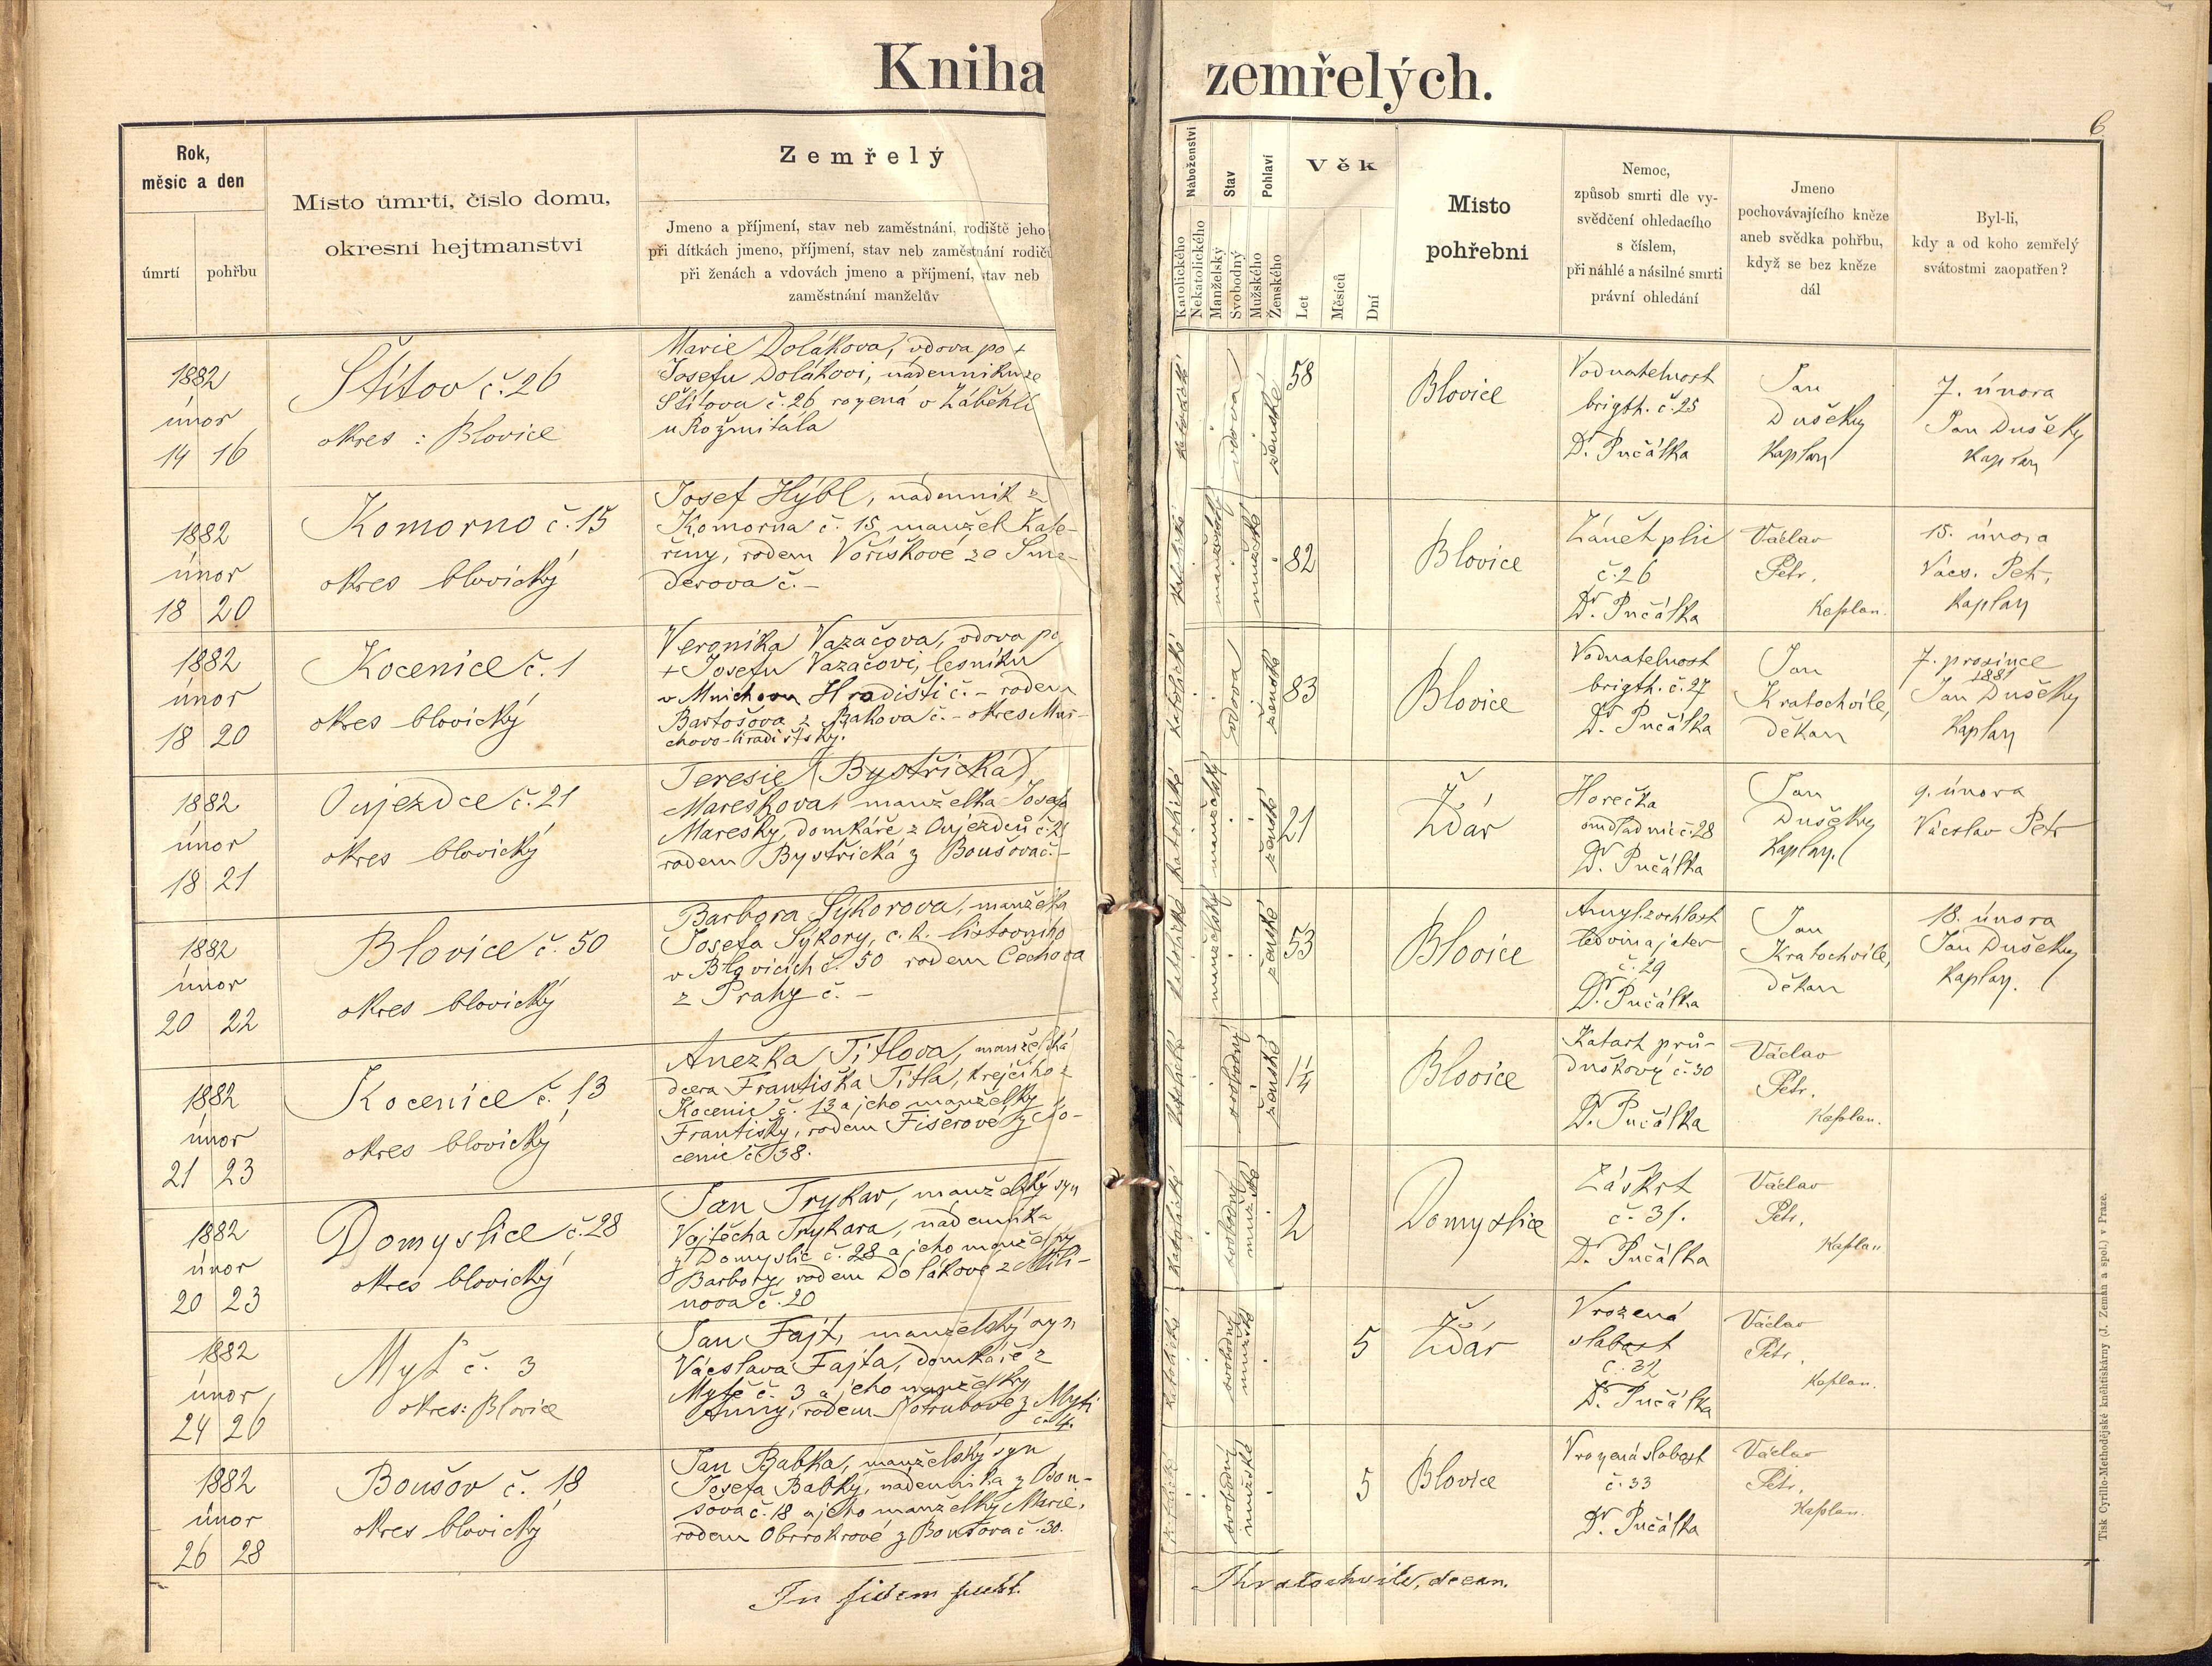 Kniha zemřelých.
6
Rok,
měsíc a den
úmrtí
pohřbu
Místo úmrtí, číslo domu,
okresní hejtmanství
Zemřelý
Jmeno a příjmení, stav neb zaměstnání, rodiště jeho
při dítkách jmeno, příjmení, stav neb zaměstnání rodičů
při ženách a vdovách jmeno a příjmení, stav neb
zaměstnání manželův
Náboženství
Katolického
Nekatolického
Stav
Manželský
Svobodný
Pohlaví
Mužského
Ženského
Věk
Let
Měsíců
Dní
Místo
pohřební
Nemoc,
způsob smrti dle vy-
svědčení ohledacího
s číslem,
při náhlé a násilné smrti
právní ohledání
Jmeno
pochovávajícího kněze
aneb svědka pohřbu,
když se bez kněze
dál
Byl-li,
kdy a od koho zemřelý
svátostmi zaopatřen?
1882
únor
14 16
Štítov č. 26
okres: Blovice
Marie Dolákova, vdova po +
Josefu Dolákovi, nádenníku ze
Štítova č. 26 rozená v Záběhli
u Rožmitála
katolické
vdova
ženské
58
Blovice
Vodnatelnost
brigth. č. 25
Dr. Pučálka
Jan
Dušeky
Kaplan
7. února
Jan Dušeky
Kaplan
1882
únor
18 20
Komorno č. 15
okres blovický
Josef Hýbl, nádenník z
Komorna č. 15, manžel Kate-
řiny, rodem Voříškové ze Sme-
derova č. –
katolické
manželský
mužské
82
Blovice
Zánět plic
č. 26
Dr. Pučálka
Václav
Petr,
Kaplan.
15. února
Václ. Petr,
Kaplan
1882
únor
18 20
Kocenice č. 1
okres blovický
Veronika Vazačova, vdova po
+ Josefu Vazačovi, lesníku
v Mnichovu Hradišti č. – rodem
Bartošova z Bakova č. – okres Mni-
chovo-hradištský.
katolické
vdova
ženské
83
Blovice
Vodnatelnost
brigth. č. 27
Dr. Pučálka
Jan
Kratochvíle,
děkan
7. prosince
1881
Jan Dušeky
Kaplan
1882
únor
18 21
Oujezdce č. 21
okres blovický
Teresie (Bystřická)
Mareškova, manželka Josefa
Marešky, domkáře z Oujezdců č. 21
rodem Bystřická z Boušova č. –
katolické
manželský
ženské
21
Ždár
Horečka
omladnic č. 28
Dr. Pučálka
Jan
Dušeky
Kaplan.
9. února
Václav Petr
1882
únor
20 22
Blovice č. 50
okres blovický
Barbora Sýkorova, manželka
Josefa Sýkory, c. k. listovního
v Blovicích č. 50 rodem Čechova
z Prahy č. –
katolické
manželský
ženské
53
Blovice
ledvin a jater
č. 29
Dr. Pučálka
Jan
Kratochvíle,
děkan
18. února
Jan Dušeky
Kaplan.
1882
únor
21 23
Kocenice č. 13
okres blovický
Anežka Títlova, manželská
dcera Františka Títla, krejčího z
Kocenic č. 13 a jeho manželky
Františky, rodem Fišerové z Ko-
cenic č. 38.
katolické
svobodný
ženské
1 1/4
Blovice
Katarh prů-
duškový č. 30
Dr. Pučálka
Václav
Petr,
Kaplan.
1882
únor
20 23
Domyslice č. 28
okres blovický
Jan Trykar, manželský syn
Vojtěcha Trykara, nádenníka
z Domyslic č. 28 a jeho manželky
Barbory, rodem Dolákové z Mili-
nova č. 20
katolické
svobodný
mužské
2
Domyslice
Záškrt
č. 31.
Dr. Pučálka
Václav
Petr,
Kaplan
1882
únor
24 26
Myť č. 3
okres: Blovice
Jan Fajt, manželský syn
Václava Fajta, domkáře z
Mytě č. 3 a jeho manželky
Anny, rodem Kotrubové z Myti
č. 4.
katolické
svobodný
mužské
5
Ždár
Vrozená
slabost
č. 32
Dr. Pučálka
Václav
Petr,
Kaplan.
1882
únor
26 28
Boušov č. 18
okres blovický
Jan Babka, manželský syn
Josefa Babky, nádenníka z Bou-
šova č. 18 a jeho manželky Marie,
rodem z Boušova č. 30.
katolické
svobodný
mužské
5
Blovice
Vrozená slabost
č. 33
Dr. Pučálka
Václav
Petr,
Kaplan.
In fidem
Kratochvíle, decan.
Tisk Cyrillo-Methodějské knihtiskárny (J. Zeman a spol.) v Praze.